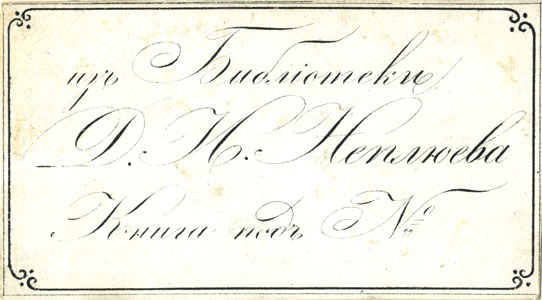 изъ Библіотеки
Д: Н: Неплюева
Книга подъ №